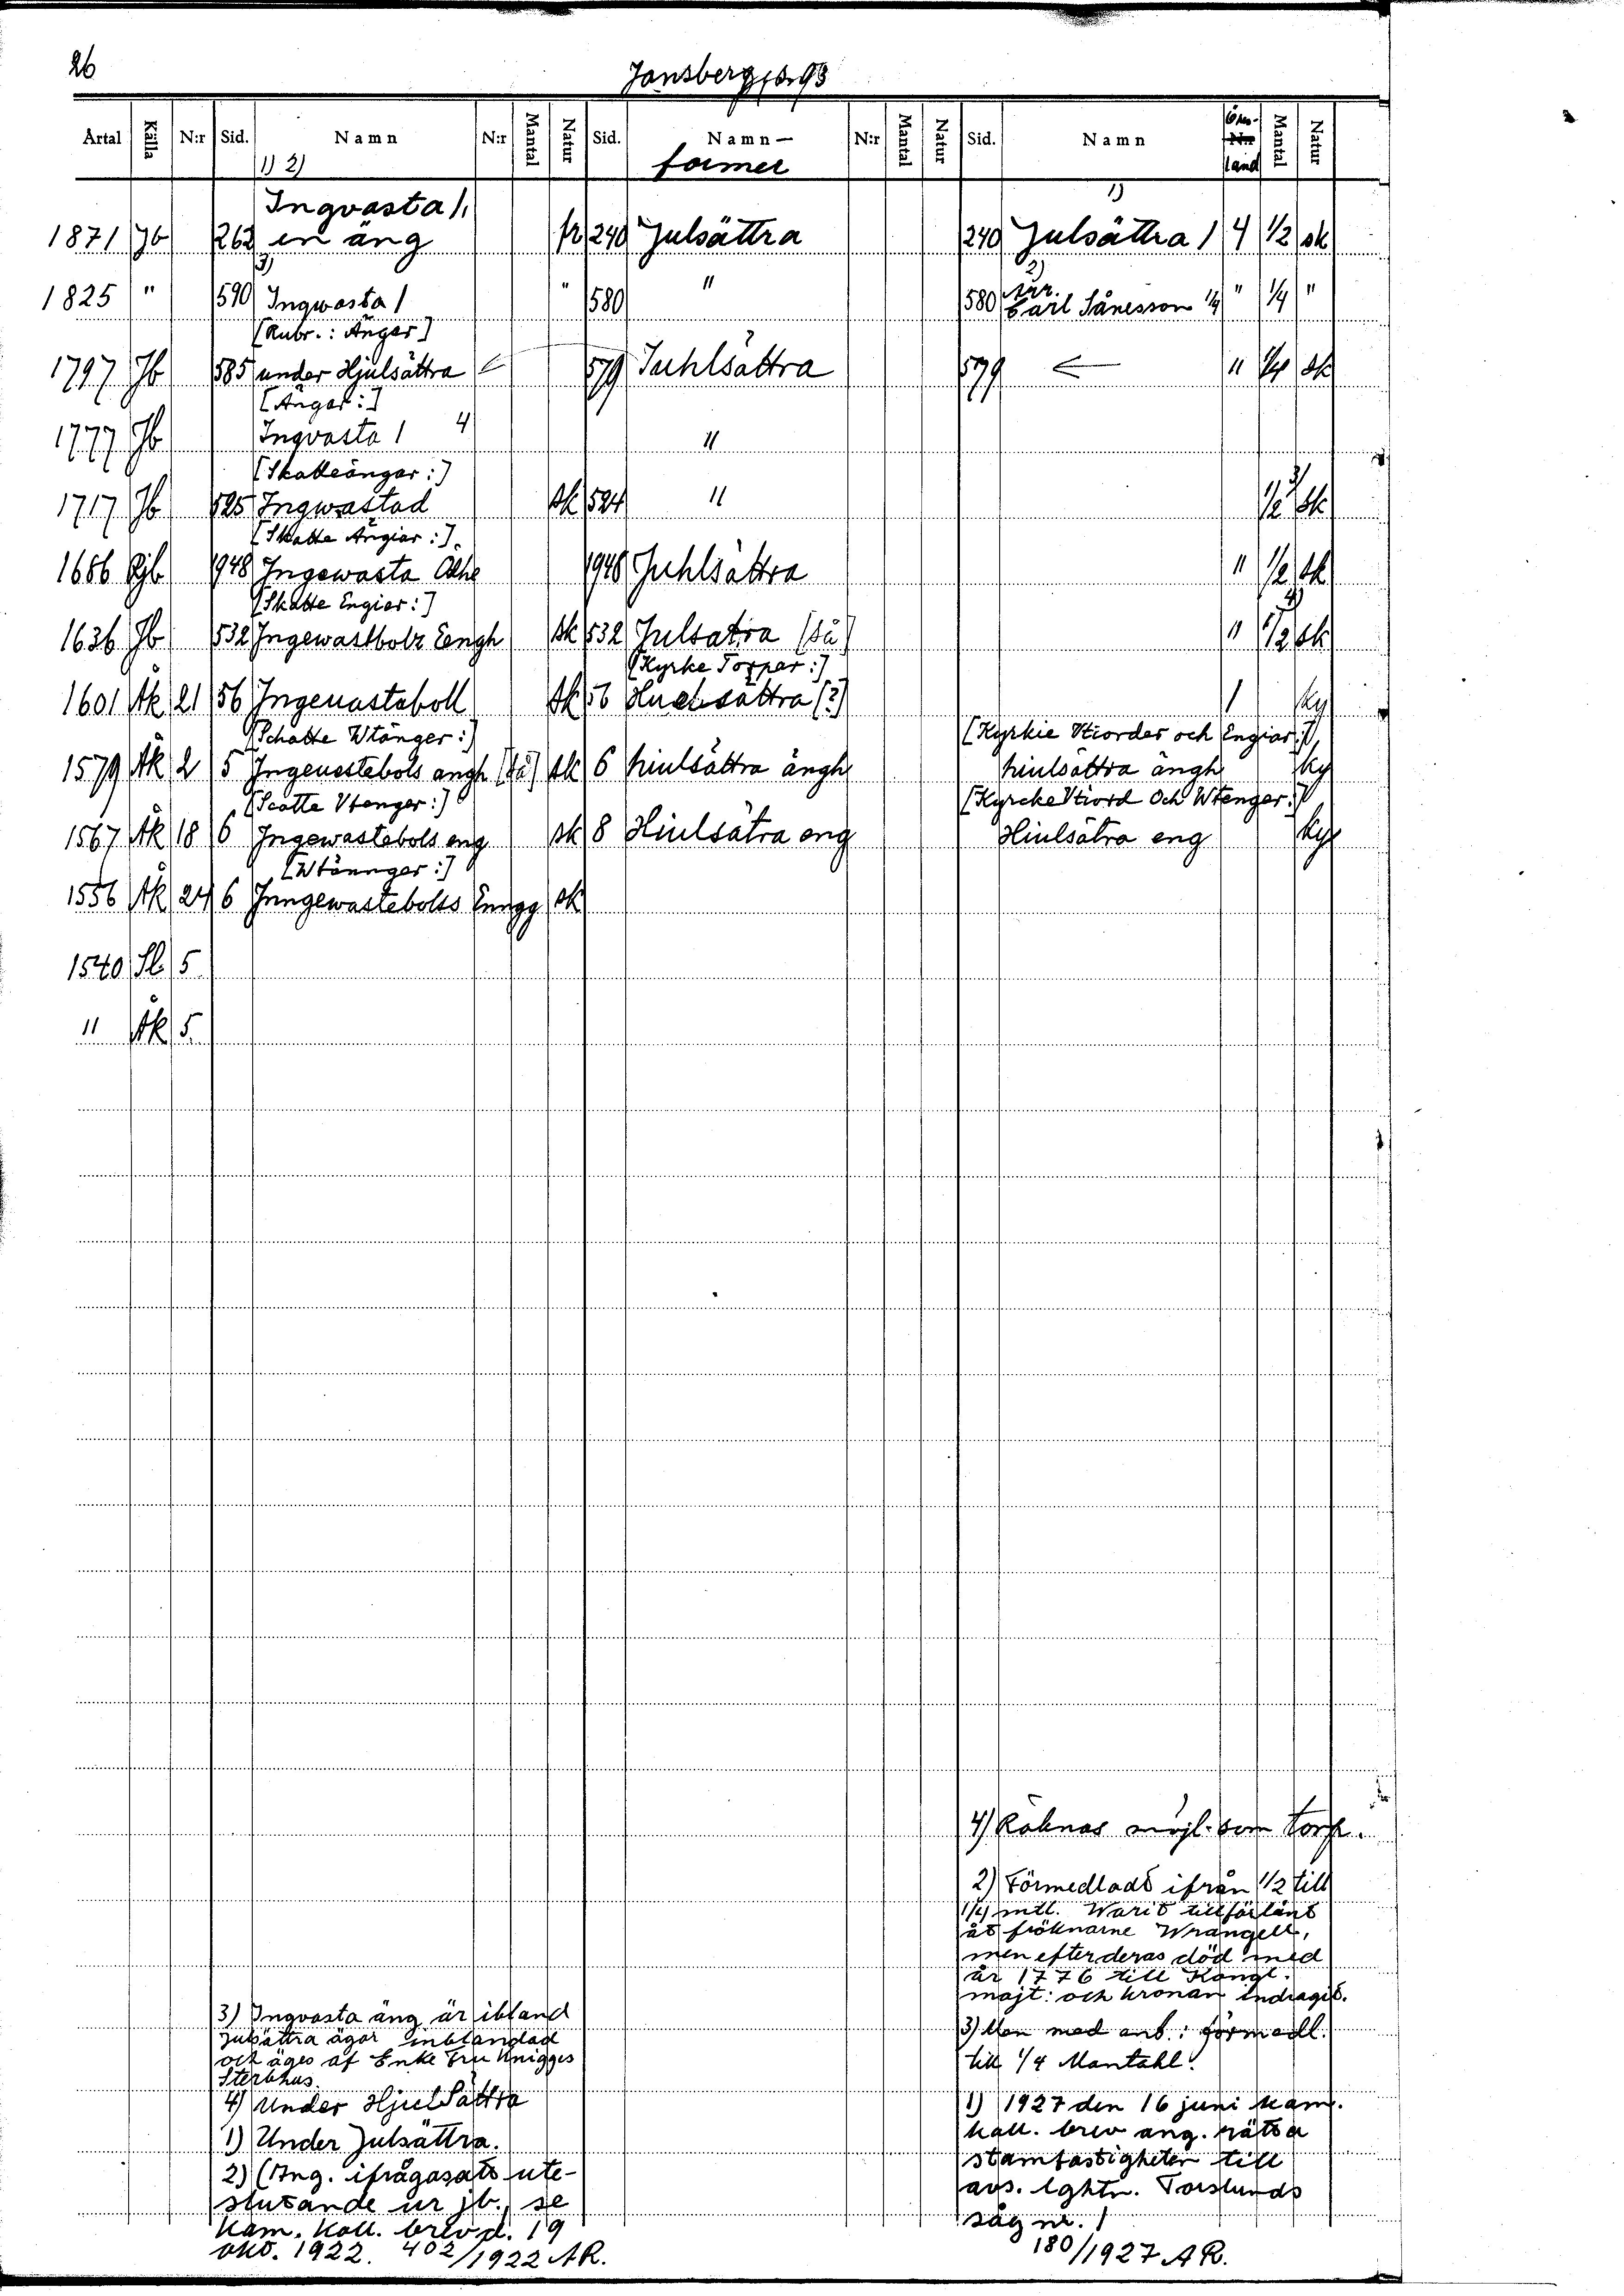 26
Jansberg, s. 93
Årtal Källa N:r Sid. Namn N:r Mantal Natur Sid. Namn— N:r Mantal Natur Sid. Namn Mantal Natur
1) 2) former land
Ingvasta 1, 1)
1871 Jb 262 en äng fr 240 Julsättra 240 Julsättra 1 4 1/2 sk
3) 2)
1825 " 590 Ingwasta 1 " 580 " 580 Carl Jänesson 1/4 " 1/4 "
[Rubr.: Ängar]
1797 Jb 585 under Hjulsättra 579 Juhlsättra 579 ← " 1/4 sk
[Ängar:]
1777 Jb Ingvasta 1 4 "
[Skatteängar:]
1717 Jb 525 Ingwastad sk 524 " 1/2 3) sk
[Skatte Ängiar:]
1686 Rjb 948 Ingewasta 948 Juhlsättra " 1/2 sk
[Skatte Engier:] 4)
1636 Jb 532 Ingewastbolz Eengh sk 532 Julsatra [så] " 1/2 sk
[Kyrke Torpar:]
1601 Åk 21 56 Ingeuastaboll sk 56 [?] 1 ky
[Schatte Wtänger:] [Kyrkie Vtiorder och Engiar:]
1579 Åk 2 5 Ingeuestebols angh [så] sk 6 hiulsättra ängh hiulsättra ängh ky
[Scatte Vtenger:] [Kyrcke Vtiord Och Wtenger:]
1567 Åk 18 6 Ingewastebols eng sk 8 Hiulsätra eng Hiulsätra eng ky
[Wtännger:]
1556 Åk 24 6 Jnngewastebolss Enngg sk
1540 Sl 5
" Åk 5
4) Räknas möjl. som torp.
2) Förmedladt ifrån 1/2 till
1/4 mtl. Warit tillförlänt
åt fröknarne Wrangell,
men efter deras död med
år 1776 till Kongl.
majt: och kronan indragit.
3) Men med ant.: förmedl.
till 1/4 Mantahl.
1) 1927 den 16 juni kam.
koll. brev ang. rätta
stamfastigheten till
avs. lghtn. Torslunds
såg nr. 1
180/1927 AR.
3) Ingvasta äng är ibland
Julsättra ägor inblandad
och äges af Enke Fru Knigges
Sterbhus.
4) Under HjulSättra
1) Under Julsättra.
2) (Ang. ifrågasatt ute-
slutande ur jb., se
Kam. Koll. brev d. 19
okt. 1922. 402/1922 AR.